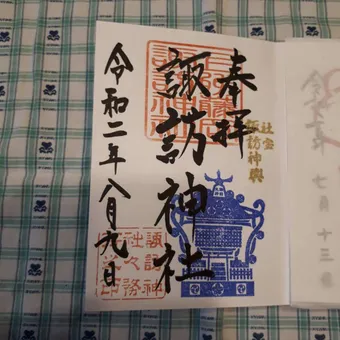 奉拝
社宝
諏訪神輿
諏訪神社
諏訪神
社々務
令和二年八月九日
七月十三日